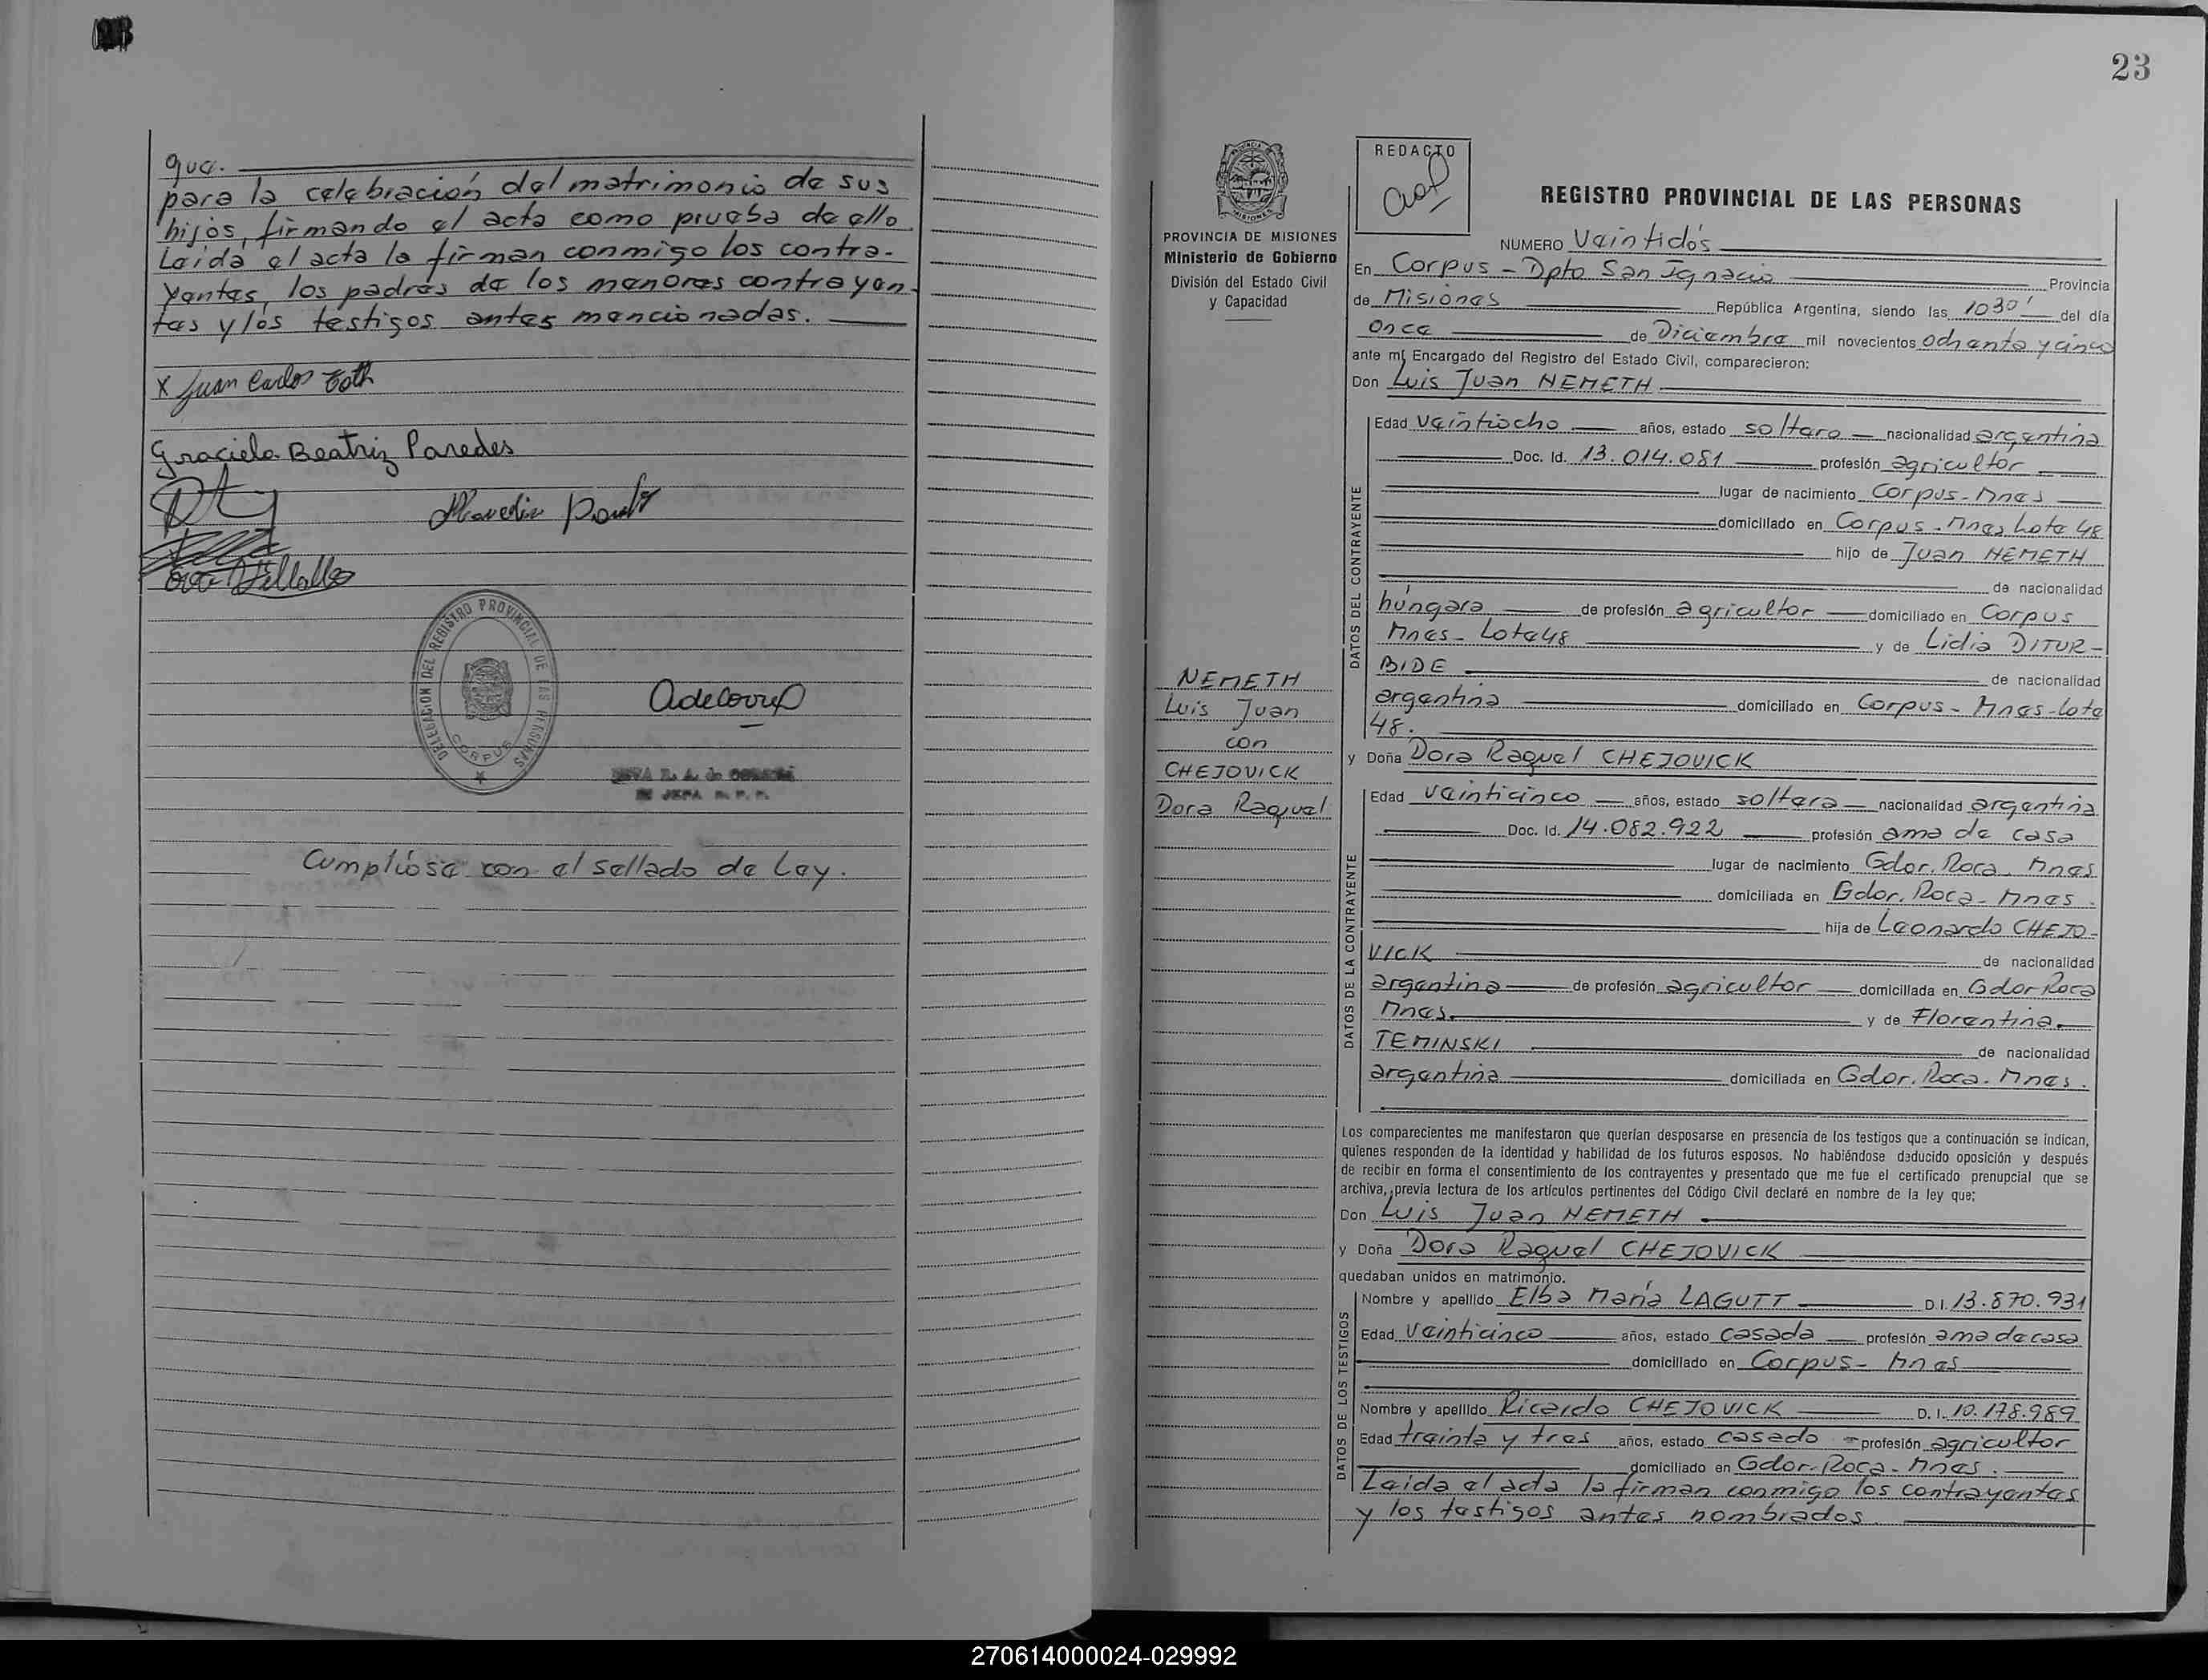 que.
para la celebración del matrimonio de sus
hijos, firmando el acta como prueba de ello.
Leida el acta la firman conmigo los contra-
yentes, los padres de los menores contrayen-
tes y los testigos antes mencionados.
x Juan Carlos Toth
Graciela Beatriz Paredes
DELEGACION DEL REGISTRO PROVINCIAL DE LAS PERSONAS
CORPUS
Cumplióse con el sellado de Ley.
23
PROVINCIA DE MISIONES
Ministerio de Gobierno
División del Estado Civil
y Capacidad
NEMETH
Luis Juan
con
CHEJOVICK
Dora Raquel
REDACTO
REGISTRO PROVINCIAL DE LAS PERSONAS
NUMERO Veintidós
En Corpus - Dpto San Ignacio Provincia
de Misiones República Argentina, siendo las 1030' del día
once de Diciembre mil novecientos ochenta y cinco
ante mí Encargado del Registro del Estado Civil, comparecieron:
Don Luis Juan NEMETH
DATOS DEL CONTRAYENTE
Edad veintiocho años, estado soltero nacionalidad argentina
Doc. Id. 13.014.081 profesión agricultor
lugar de nacimiento Corpus - Mnes
domiciliado en Corpus - Mnes Lote 48
hijo de Juan NEMETH
de nacionalidad
húngara de profesión agricultor domiciliado en Corpus
Mnes - Lote 48 y de Lidia DITUR-
BIDE de nacionalidad
argentina domiciliado en Corpus - Mnes - Lote
48.
y Doña Dora Raquel CHEJOVICK
DATOS DE LA CONTRAYENTE
Edad veinticinco años, estado soltera nacionalidad argentina
Doc. Id. 14.082.922 profesión ama de casa
lugar de nacimiento Gdor. Roca. Mnes
domiciliada en Gdor. Roca - Mnes.
hija de Leonardo CHEJO-
VICK de nacionalidad
argentina de profesión agricultor domiciliada en Gdor Roca
Mnes. y de Florentina
TEMINSKI de nacionalidad
argentina domiciliada en Gdor. Roca. Mnes.
Los comparecientes me manifestaron que querían desposarse en presencia de los testigos que a continuación se indican,
quienes responden de la identidad y habilidad de los futuros esposos. No habiéndose deducido oposición y después
de recibir en forma el consentimiento de los contrayentes y presentado que me fue el certificado prenupcial que se
archiva, previa lectura de los artículos pertinentes del Código Civil declaré en nombre de la ley que;
Don Luis Juan NEMETH
y Doña Dora Raquel CHEJOVICK
quedaban unidos en matrimonio.
DATOS DE LOS TESTIGOS
Nombre y apellido Elba María LAGUTT D.I. 13.870.931
Edad veinticinco años, estado casada profesión ama de casa
domiciliado en Corpus - Mnes
Nombre y apellido Ricardo CHEJOVICK D. I. 10.178.989
Edad treinta y tres años, estado casado profesión agricultor
domiciliado en Gdor. Roca - Mnes.
Leida el acta la firman conmigo los contrayentes
y los testigos antes nombrados.
270614000024-029992